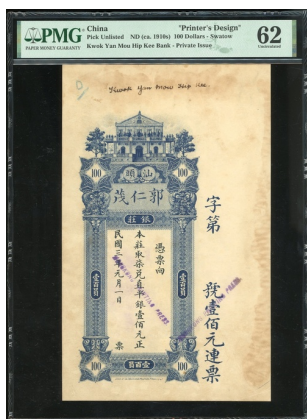 PMG
PAPER MONEY GUARANTY
China
"Printer's Design"
Pick Unlisted ND (ca. 1910s) 100 Dollars - Swatow
Kwok Yan Mou Hip Kee Bank - Private Issue
62
Uncirculated
Kwok Yan Mow Hip Kee
汕頭
100
100
郭仁茂
銀莊
憑票向
本莊取柒兌直平銀壹佰元正
民國三年元月一日
票
壹百員
壹百員
字第
號壹佰元連票
100
100
壹百員